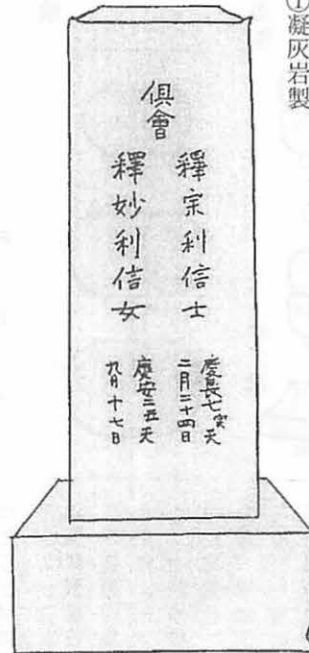 ①凝灰岩製
倶會
釋宗利信士
慶長七寅天
二月二十四日
釋妙利信女
慶安二丑天
九月十七日